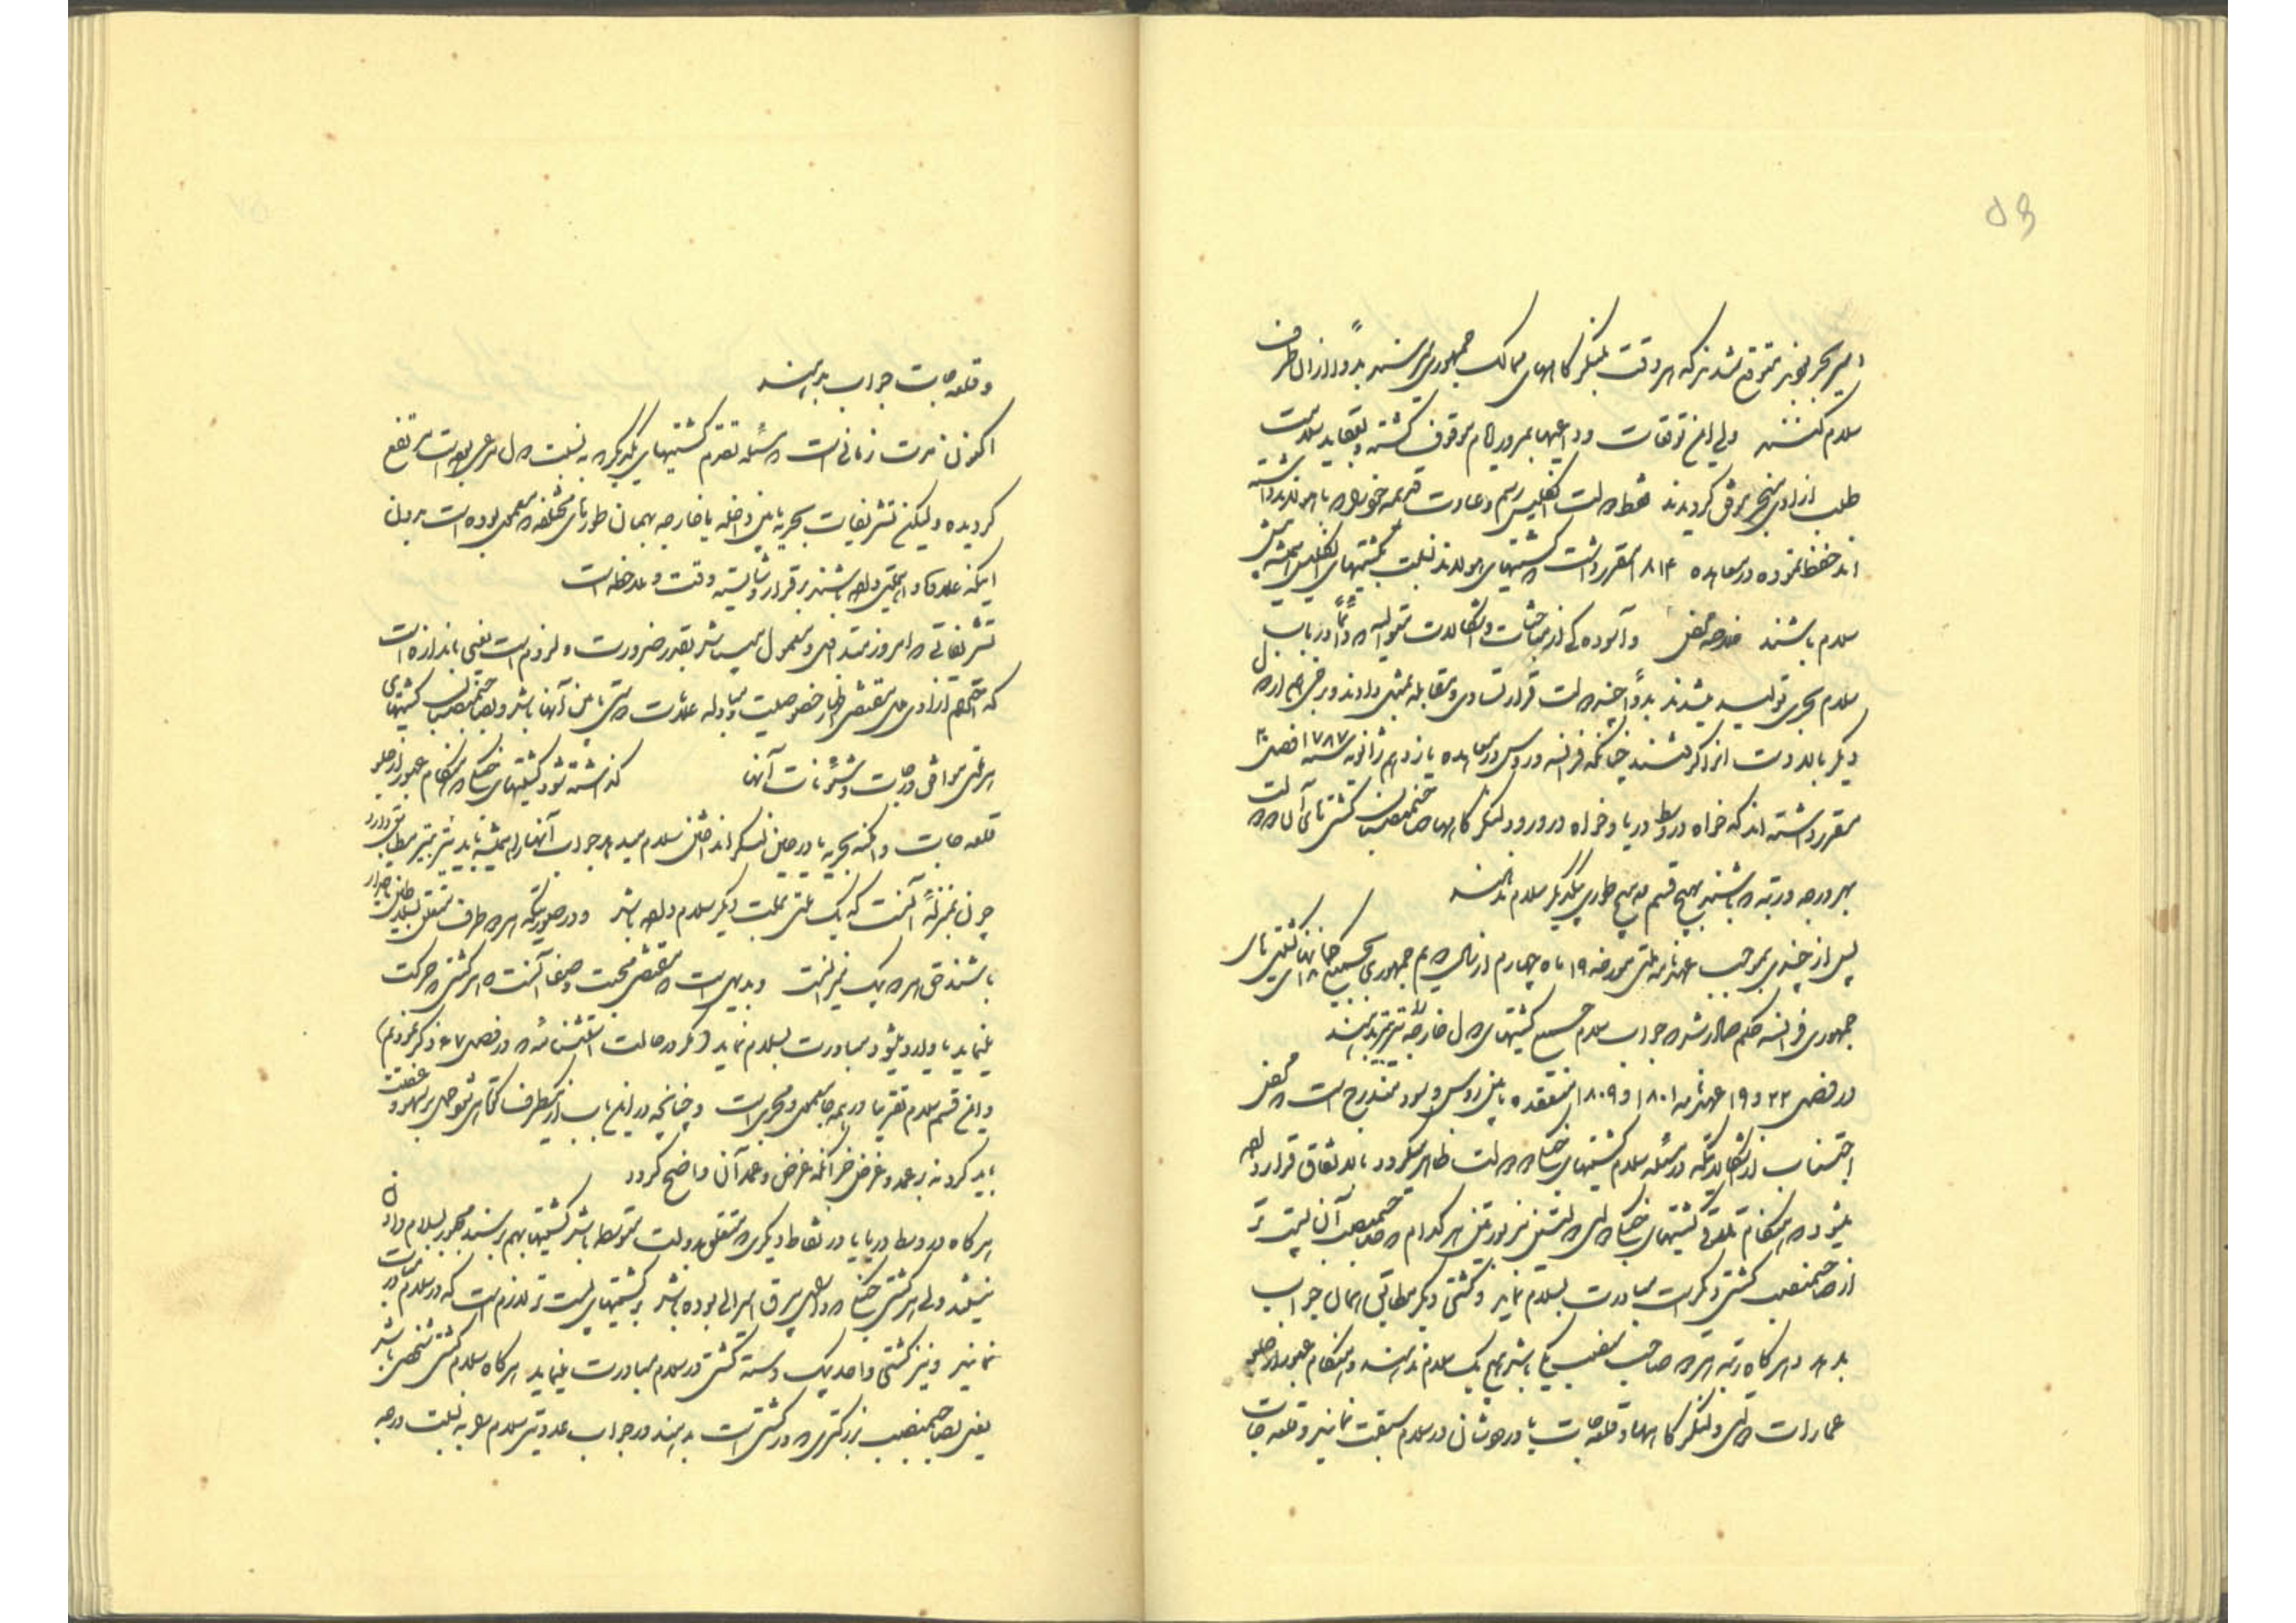 ۵۶
امیر بحر خود نیز متوقع شدند که هر وقت بلنگرگاههای ممالک جمهوری میرسند بدواً از آن طرف
سلام کنند ولی این توقعات و داعیه‌ها بمرور ایام موقوف گشته و بعقاید
طلب آزادی منجر گردیدند فقط دولت انگلیس رسم و عادت قدیمه خود را با هولاند
اند حفظ نموده در معاهده ۱۸۱۴ مقرر داشت که کشتیهای هولاند نسبت بکشتیهای انگلیس همیشه
سلام باشند و آسوده از مباحثات و اشکالات متوالیه که دائماً در باب
سلام بحری تولید میشدند بدواً چند دولت قرار تساوی و مقابله بمثل دادند و برخی هم از دول
دیگر بالمره متارکه کردند چنانکه فرانسه و روس در معاهده یازدهم ژانویه سنه ۱۷۸۷ فصل ۲۰
مقرر داشته‌اند که خواه در وسط دریا و خواه در ورود لنگرگاهها صاحبمنصبان کشتی‌های آن دو دولت
بهر درجه و رتبه که باشند بهیچ قسم و بهیچ طوری بیکدیگر سلام ندهند
پس از چندی بموجب عهدنامه ملتی مورخه ۱۹ ماه چهارم از سال سیم جمهوری بجمیع کشتی‌های
جمهوری فرانسه حکم صادر شد که جواب سلام جمیع کشتیهای دول خارجه را تیر به تیر بدهند
در فصل ۲۲ و ۱۹ عهدنامه ۱۸۰۱ و ۱۸۰۹ منعقده مابین روس و سود مندرج است که محض
اجتناب از اشکالاتیکه در مسئله سلام کشتیهای جنگی دو دولت ظاهر میگردد بالاتفاق قرار داده
میشود که هنگام تلاقی کشتیهای جنگی دولتین مزبورتین هر کدام که صاحبمنصب آن پست تر
از صاحبمنصب کشتی دیگر است مبادرت بسلام نماید و کشتی دیگر مطابق همان جواب
بدهد و هرگاه رتبه هر دو صاحب منصب یکی باشد هیچ یک سلام ندهند و هنگام عبور از جلو
عمارات دولتی و لنگرگاهها و قلعه‌جات پادشاهان در سلام سبقت نمایند و قلعه‌جات
و قلعه‌جات جواب بدهند
اکنون مدت زمانی است که مسئله تقدم کشتیهای یکدیگر به نسبت دول مرعی بود مرتفع
گردیده ولیکن تشریفات بحریه مابین داخله یا خارجه بهمان طورهای مختلفه که معمول بوده است بدون
اینکه علاوه اهمیتی داشته باشند برقرار و شایسته دقت و ملاحظه است
تشریفاتی که امروز متداول و معمول میباشد بقدر ضرورت و لزوم است یعنی باندازه است
که احترام آزادی ملل مقتضی اظهار خصوصیت و مبادله علامت دوستی مابین آنها باشد و بصاحبمنصبان کشتیهای
هر ملتی موافق درجات و شئونات آنها گذاشته شود کشتیهای جنگی که هنگام عبور از جلو
قلعه‌جات و امکنه بحریه یا در حین لنگر انداختن سلام میدهند جواب آنها را همیشه باید تیر بتیر مطابق داد
چون بمنزله آنست که یک ملتی بملت دیگر سلام داده باشد و در صورتیکه هر دو طرف متعلق بسلاطین تاجدار
باشند حق هر دو یک نیر است و بدیهی است که مقتضی محبت و صفا آنست که هر کشتی که حرکت
مینماید یا وارد میشود مبادرت بسلام نماید (مگر در حالت استثنائیه که در فصل ۴۷ ذکر نمودیم)
و این قسم سلام تقریبا در همه جا معمول و مجری است و چنانچه در این باب از یکطرف کوتاهی شود حمل بر سهو و غفلت
باید کرد نه بر عمد و غرض جز آنکه غرض و عمد آن واضح گردد
هرگاه در وسط دریا یا در نقاط دیگری که متعلق بدولت متوسطه باشد کشتیها بهم برسند مجبور بسلام دادن
نیستند ولی هر کشتی جنگی که دارای بیرق امیرالی بوده باشد بر کشتیهای پست تر لازم است که در سلام مبادرت
نمایند و نیز کشتی واحد بیک دسته کشتی در سلام مبادرت مینماید هرگاه سلام کشتی شخصی باشد
یعنی بصاحبمنصب بزرگتری که در کشتی است بدهند در جواب عدد تیر سلام به نسبت درجه